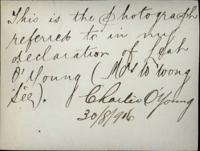 This is the photograph
referred to in my
declaration of
O'Young (Mrs Wong
See).
Charlie O'Young
30/8/96